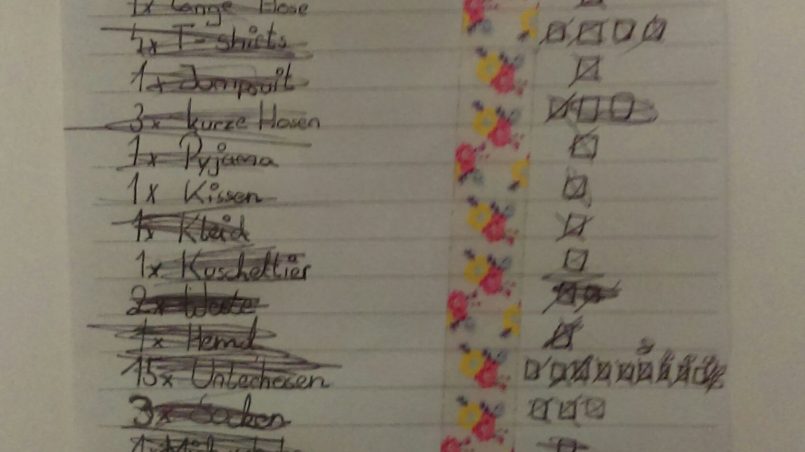 1x Lange Hose
4x T-shirts
1x Jumpsuit
3x kurze Hosen
1x Pyjama
1x Kissen
1x Kleid
1x Kuscheltier
2x Weste
1x Hemd
15x Unterhosen
3x Socken
1x